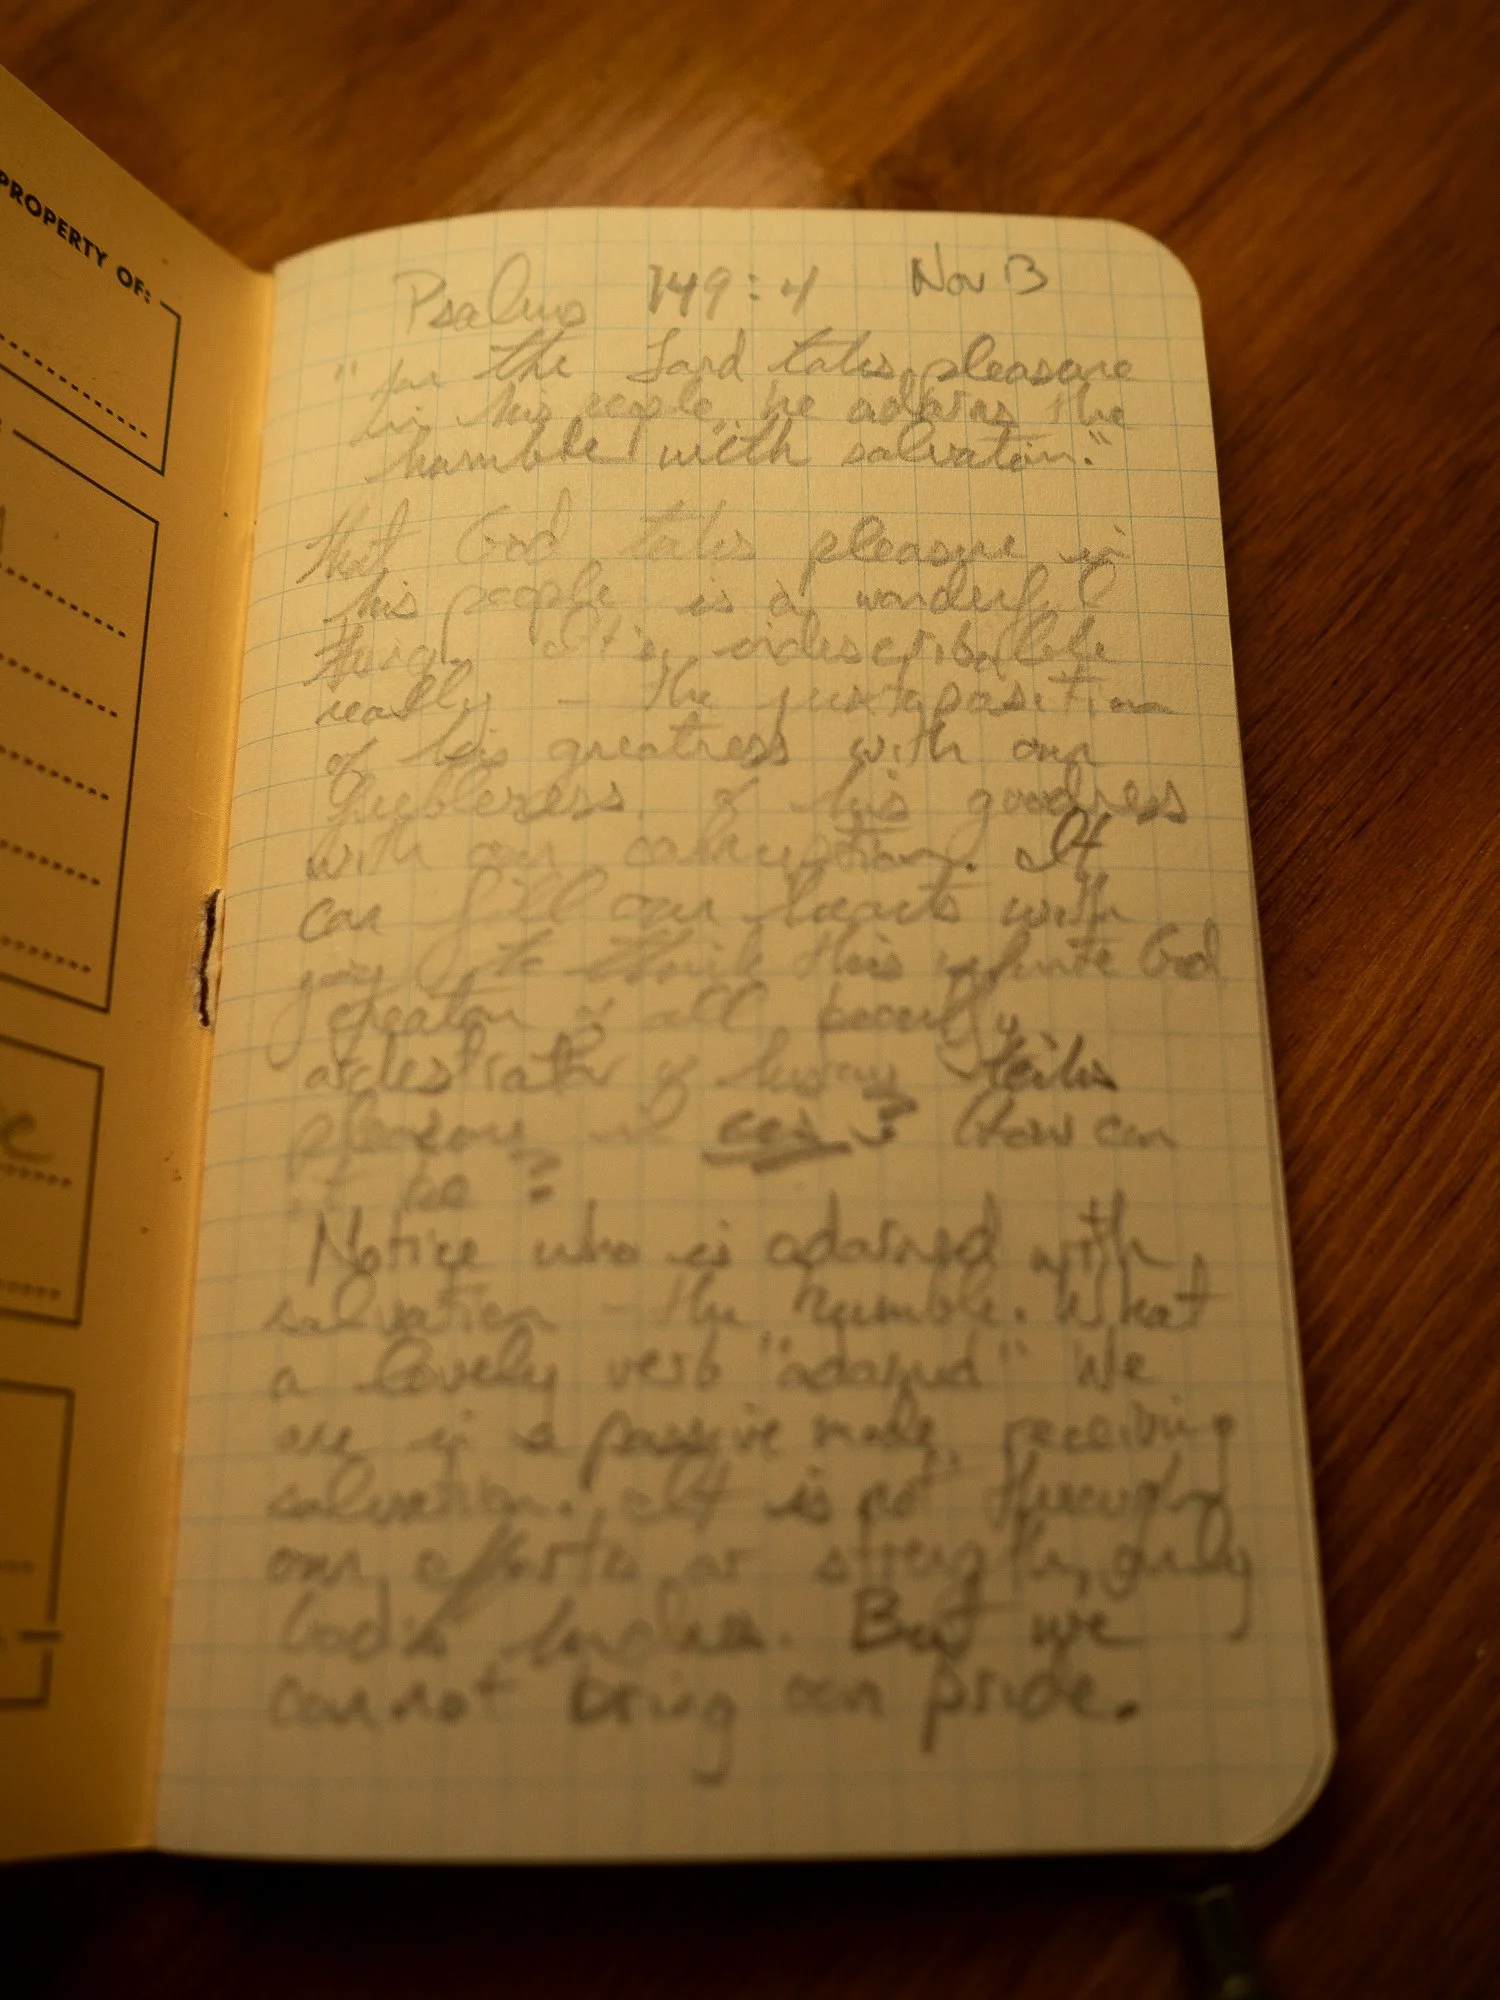 PROPERTY OF:
Psalms 149:4 Nov 13
"for the Lord takes pleasure
in his people, he adorns the
humble with salvation."
That God takes pleasure in
his people is a wonderful
thing. It is indescribable
really - the juxtaposition
of his greatness with our
feebleness, of his goodness
with our corruption. It
can fill our hearts with
joy to think this infinite God
creator of all beauty,
of history takes
pleasure in us? How can
it be?
Notice who is adorned with
salvation - the humble. What
a lovely verb "adorned" We
are in a passive mode, receiving
salvation. It is not through
our efforts or strength, only
God's kindness. But we
cannot bring our pride.